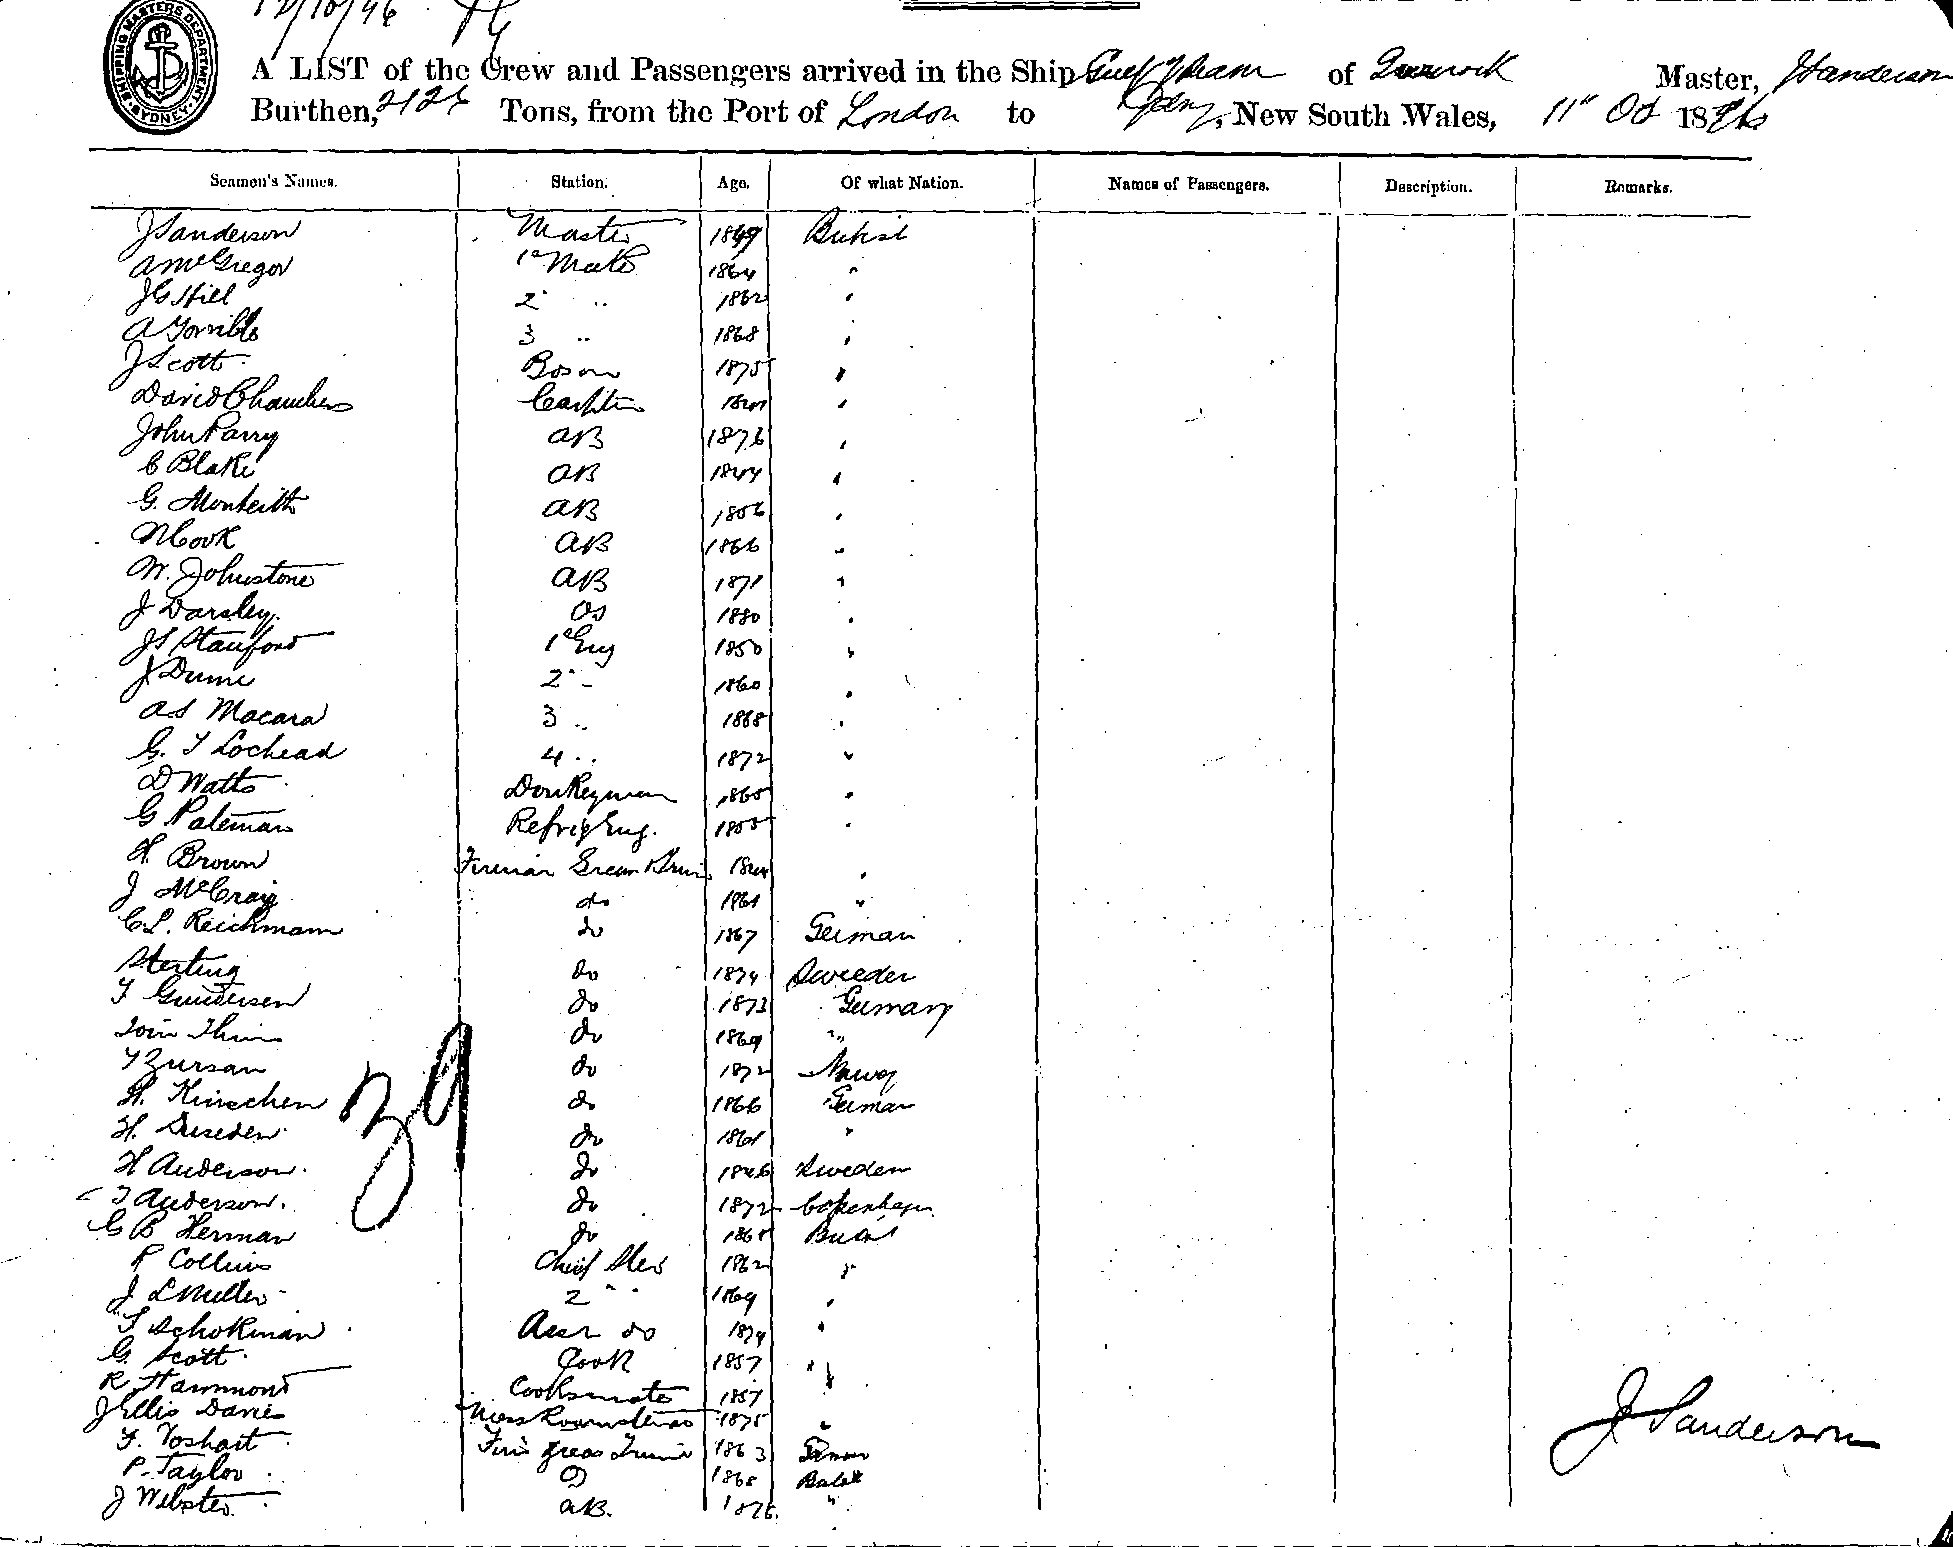 12/10/96
SHIPPING MASTERS DEPARTMENT SYDNEY
A LIST of the Crew and Passengers arrived in the Ship Gulf of Siam of Greenock Master, J Sanderson
Burthen, 2126 Tons, from the Port of London to Sydney, New South Wales, 11th Oct 1896
Seamen's Names. Station. Age. Of what Nation. Names of Passengers. Description. Remarks.
J Sanderson Master 1849 British
A McGregor 1st Mate 1864 "
J G Hill 2 " 1862 "
A Gorrible 3 " 1868 "
J Scott Bosun 1875 "
David Chambers Carpter "
John Parry AB 1876 "
C Blake AB 1844 "
G. Monteith AB 1856 "
N Cook AB 1866 "
W. Johnstone AB 1871 "
J Darsley OS 1880 "
J S Stanford 1st Eng 1850 "
J Dunne 2 " 1860 "
A S Macara 3 " 1868 "
G. T Lochead 4 " 1872 "
D Watts Donkeyman 1865 "
G Pateman Refrig Eng. 1855 "
H. Brown Fireman Greaser & Trim "
J McCraig do 1861 "
C L. Reichmann do 1867 German
Sterling do 1874 Sweeden
F Gundersen do 1873 Germany
do 1869 "
do 1872 Norway
H. Hinschen do 1866 German
H. Dreseden do 1861 "
H Anderson do 1846 Sweden
J Anderson do 1872 Copenhagen
G B Herman do 1865 British
P Collins Chief Stew 1862 "
J L Miller 2 " 1869 "
S Schokman Assr do 1874 "
G. Scott Cook 1857 "
R Hammond Cooksmate 1857 "
J Ellis Davies Mess Room Steward 1875 "
F. Voshart Fire Greas Trimr 1863 German
P. Taylor D 1868 British
J Webster AB. 1876 "
39
J Sanderson